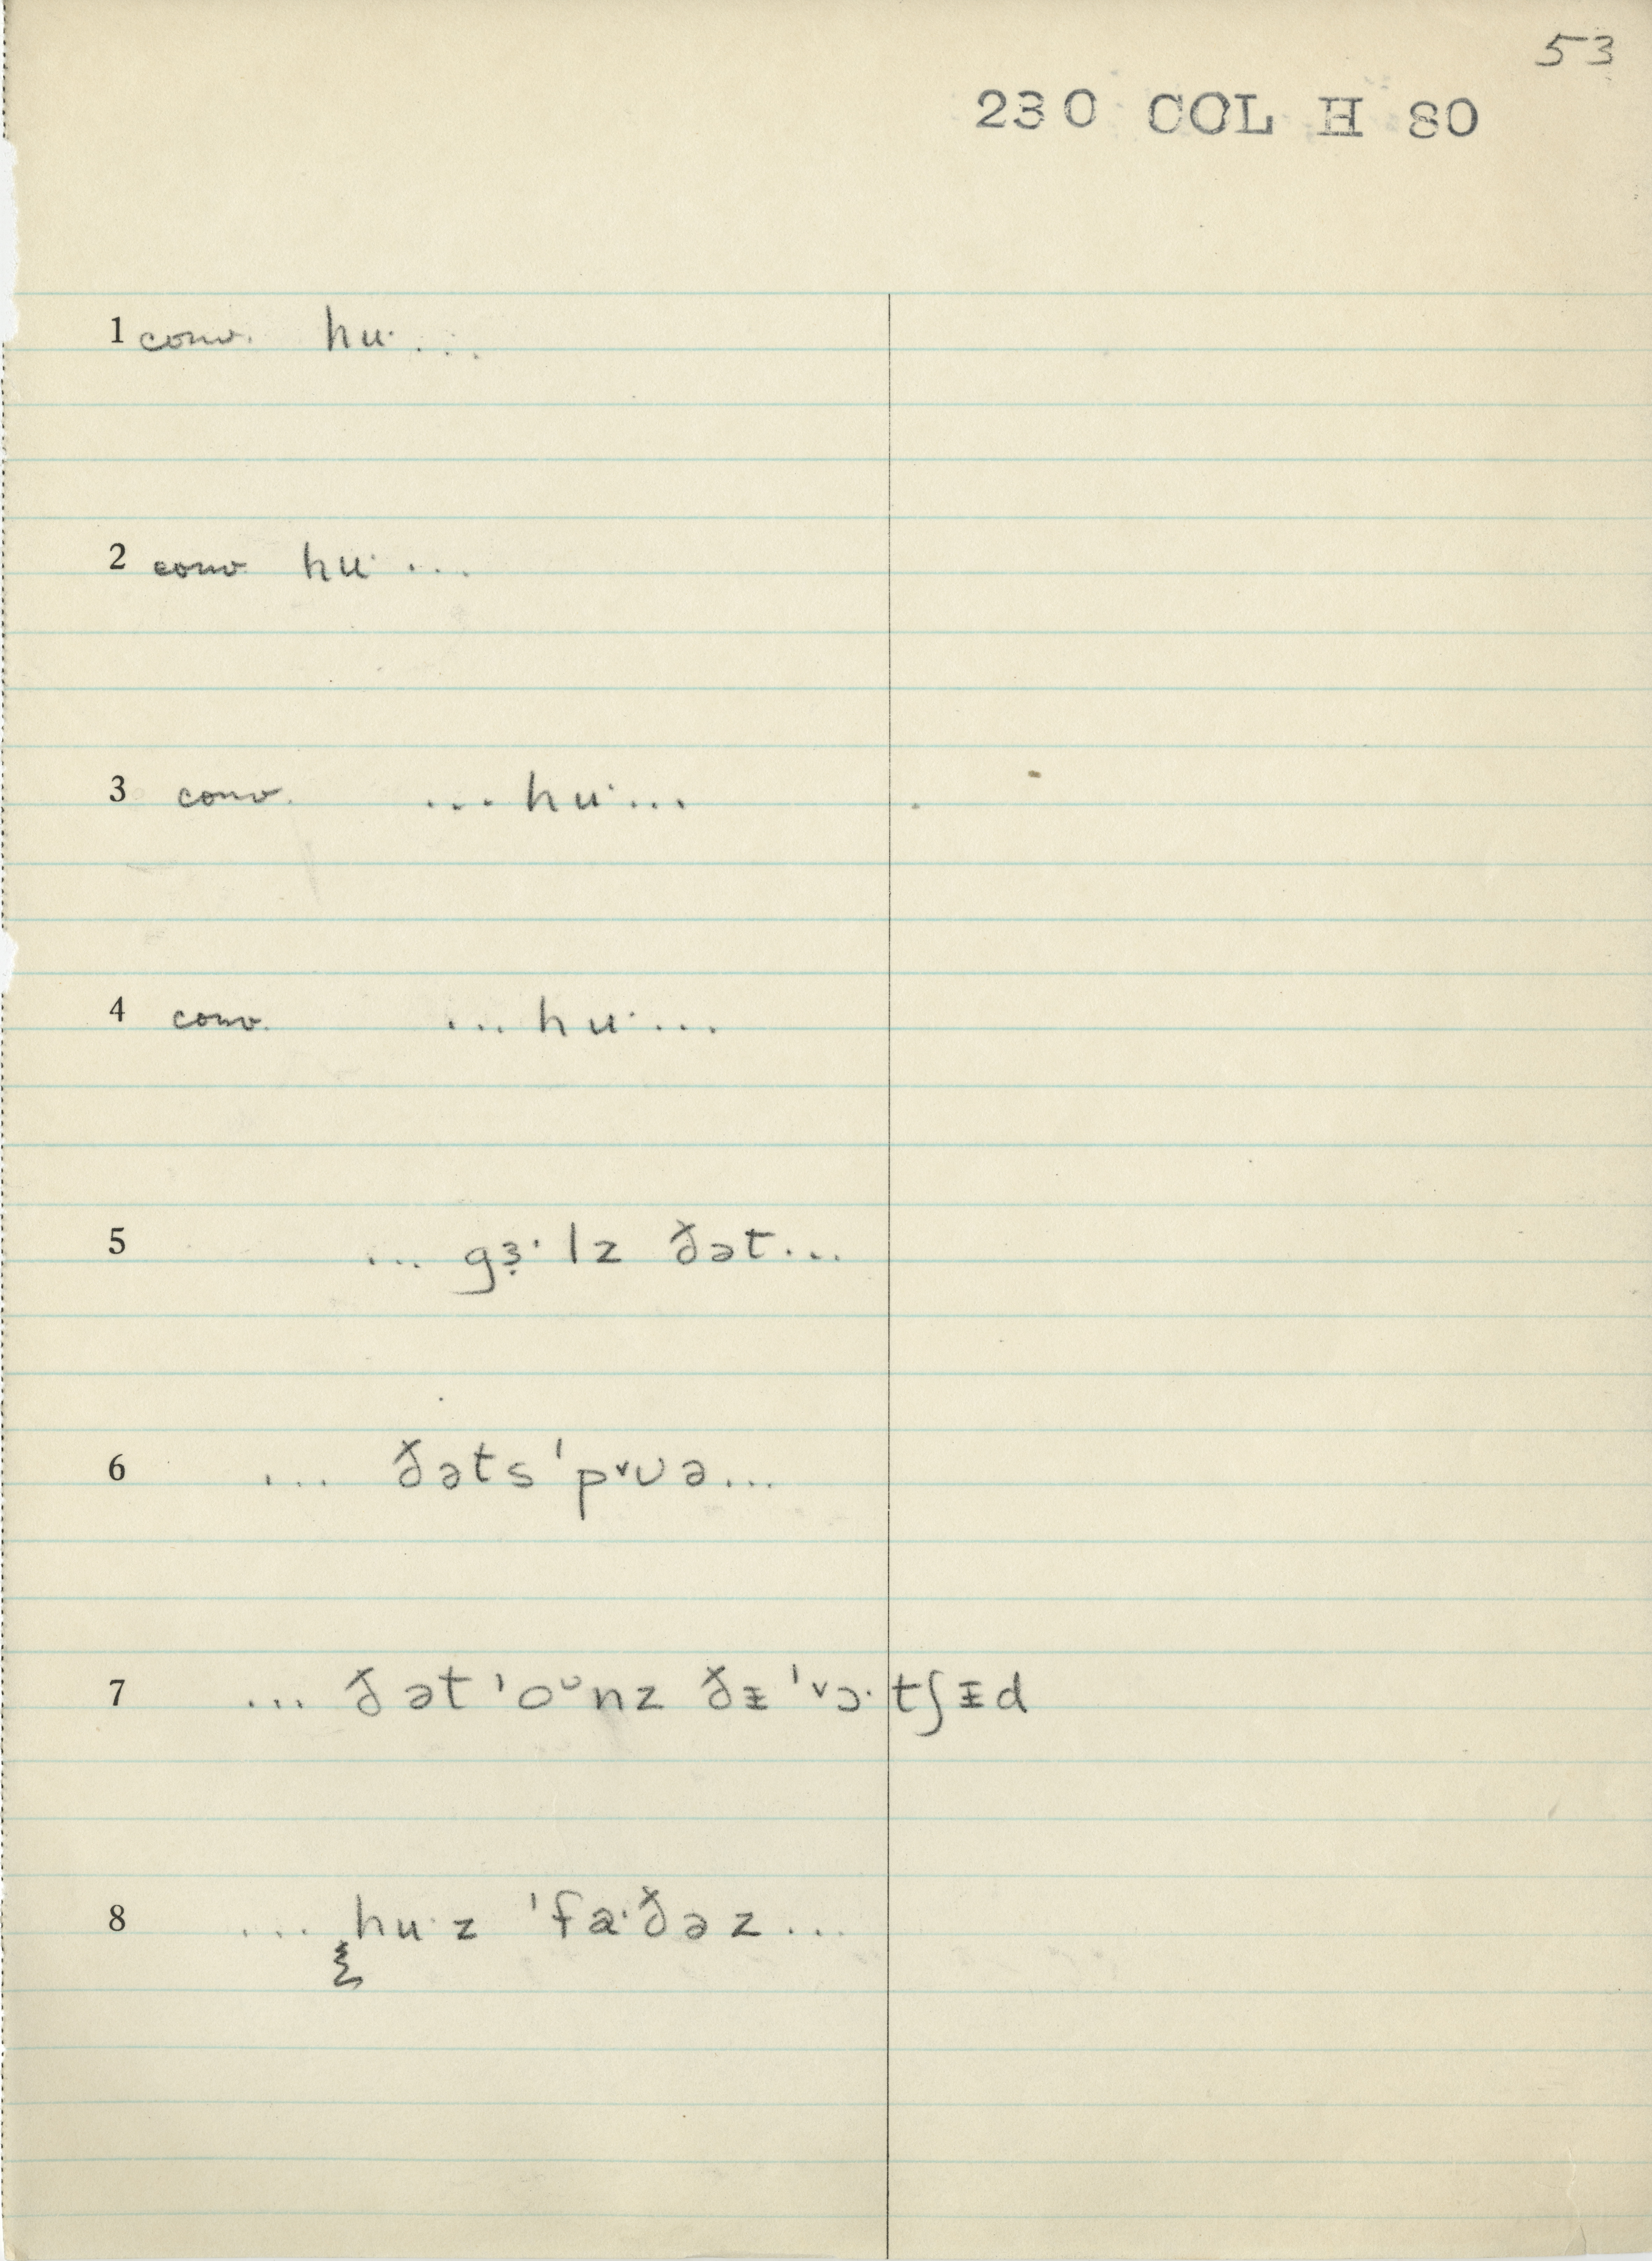 53
230 COL H 80
1 conv. hu· ...
2 conv. hu· ...
3 conv. ... hu· ...
4 conv. ... hu· ...
5 ... gɜ̣·lz ðət ...
6 ... ðəts ˈpᵛʊə ...
7 ... ðət ˈoᶷnz ðɪ̵ ˈvɔ·tʃɪ̵d
8 ... hu·z ˈfa·ðəz ...